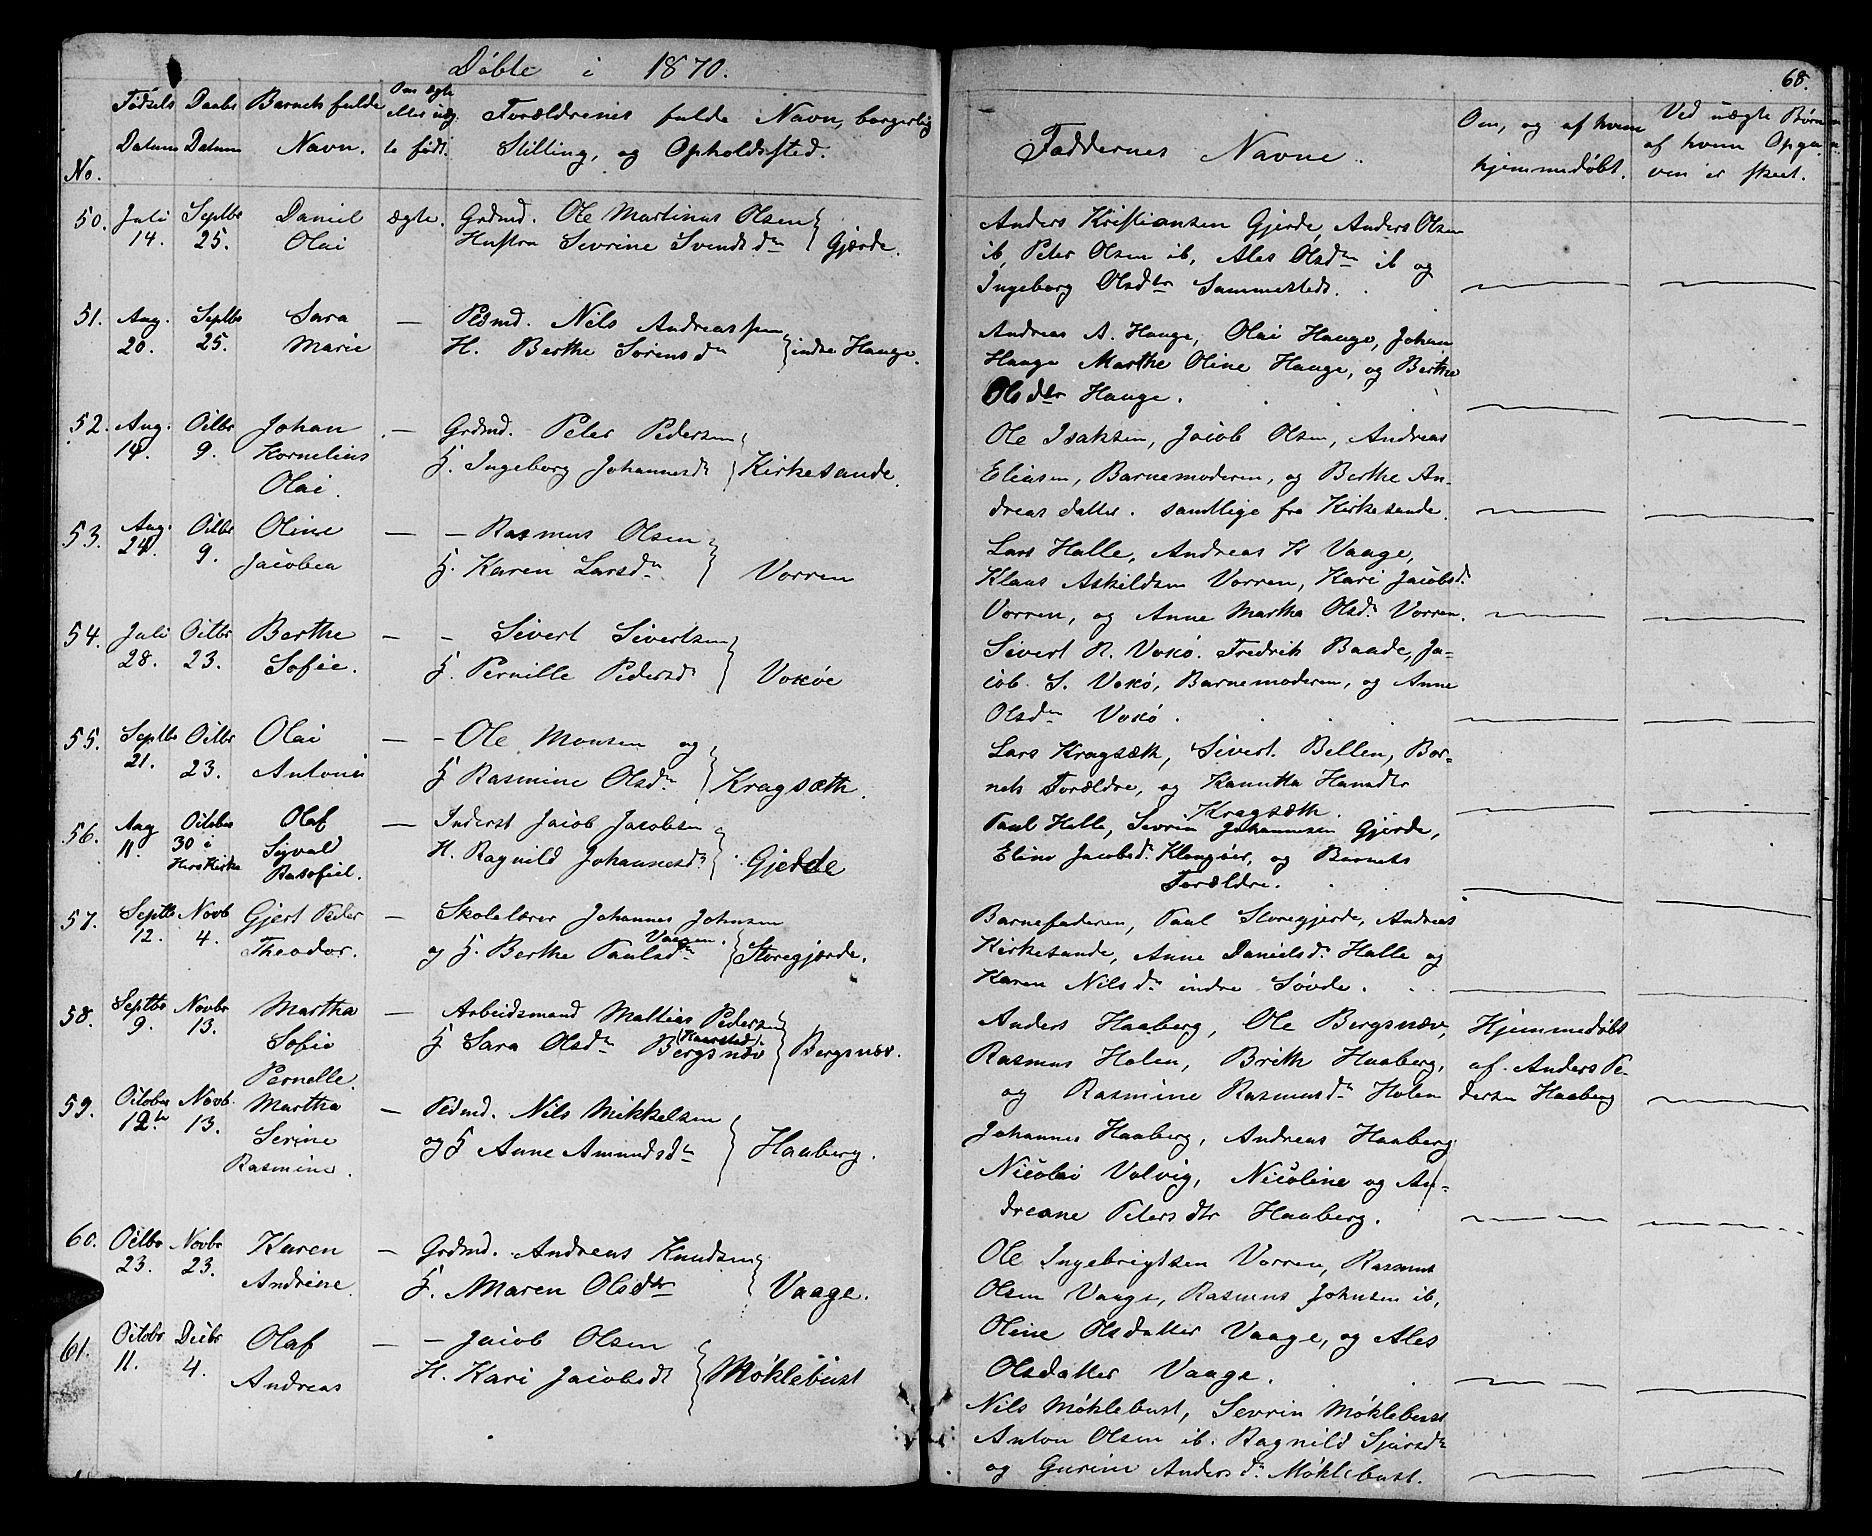 Döbte i 1870.
68.
No.
Fødsels Datum
Daabs Datum
Barnets fulde Navn.
Om ægte eller uægte født.
Forældrenes fulde Navn, borgerlig Stilling, og Opholdssted.
Faddernes Navne.
Om, og af hvem hjemmedøbt.
Ved uægte Børn af hvem Opgaven er skeet.
50. Juli 14. Septbr 25. Daniel Olai ægte.
Grdmd. Ole Martinus Olsen
Hustru Sevrine Svendsdtr Gjærde.
Anders Kristiansen Gjerde, Anders Olsen
ib, Peter Olsen ib, Ales Olsdtr ib og
Ingeborg Olsdtr Sammesteds.
51. Aug. 20. Septbr 25. Sara Marie —
Pldsmd. Nils Andreassen
H. Berthe Sørensdtr indre Hauge.
Andreas A. Hauge, Olai Hauge, Johan
Hauge Marthe Oline Hauge, og Berthe
Olsdtr Hauge.
52. Aug. 14. Octbr 9. Johan Kornelius Olai. —
Grdmd. Peter Pedersen
H. Ingeborg Johannesdt Kirkesande.
Ole Isaksen, Jacob Olsen, Andreas
Eliasen, Barnemoderen, og Berthe An-
dreasdatter. samtlige fra Kirkesande.
53. Aug. 24. Octbr 9. Oline Jacobea —
— Rasmus Olsen
H. Karen Larsdtr Vorren
Lars Halle, Andreas K Vaage,
Klaus Askildsen Vorren, Kari Jacobsd.
Vorren, og Anne Martha Olsdr Vorren.
54. Juli 28. Octbr 23. Berthe Sofie. —
— Sivert Sivertsen
H. Pernille Pedersdt Voxøe
Sivert R. Voxø. Fredrik Baade, Ja-
cob S. Voxø, Barnemoderen, og Anne
Olsdtr Voxø.
55. Septbr 21. Octbr 23. Olai Antonie —
— Ole Monsen og
H Rasmine Olsdtr Kragsæth.
Lars Kragsæth, Sivert Bellen, Bar-
nets Forældre, og Kanutta Hansdtr
Kragsæth.
56. Aug 11. Octobr 30 i Herø Kirke Olaf Sigvald —
Inderst Jacob Jacobsen
H. Ragnild Johannesdt Gjerde
Paul Halle, Sevrin Johannesen Gjerde,
Eline Jacobsdr og Barnets
Forældre.
57. Septbr 12. Novb 4. Gjert Peder Theodor. —
Skolelærer Johannes Johnsen
og H. Berthe Paulsdtr Storegjærde.
Barnefaderen, Paul Storegjerde, Andreas
Kirkesande, Anne Danielsdr Halle og
Karen Nilsdr indre Søvde.
58. Septbr 9. Novbr 13. Martha Sofie Pernelle. —
Arbeidsmand Mattias Pedersen
H Sara Olsdtr Bergsnæv Bergsnæv.
Anders Haaberg, Ole Bergsnæv,
Rasmus Holen, Brith Haaberg,
og Rasmine Rasmusdtr Holen
Hjemmedøbt
af Anders Pe-
dersen Haaberg
59. Octobr 12te Novb. 13. Martha Serine Rasmine. —
Pldsmd. Nils Mikkelsen
og H Anne Amundsdtr Haaberg.
Johannes Haaberg, Andreas Haaberg
Nicolai Valvig, Nicoline og An-
dreane Petersdtr Haaberg.
60. Octbr 23. Novbr 23. Karen Andrine. —
Grdmd. Andreas Knudsen
H. Maren Olsdtr Vaage.
Ole Ingebrigtsen Vorren, Rasmus
Olsen Vaage, Rasmus Johnsen ib,
Oline Olsdatter Vaage, og Ales
Olsdatter Vaage.
61. Octobr 11. Decbr 4. Olaf Andreas —
— Jacob Olsen
H. Kari Jacobsdt Møklebust
Nils Møklebust, Sevrin Møklebust
Anton Olsen ib. Ragnild Sjursdtr
og Gurine Andersdr Møklebust.